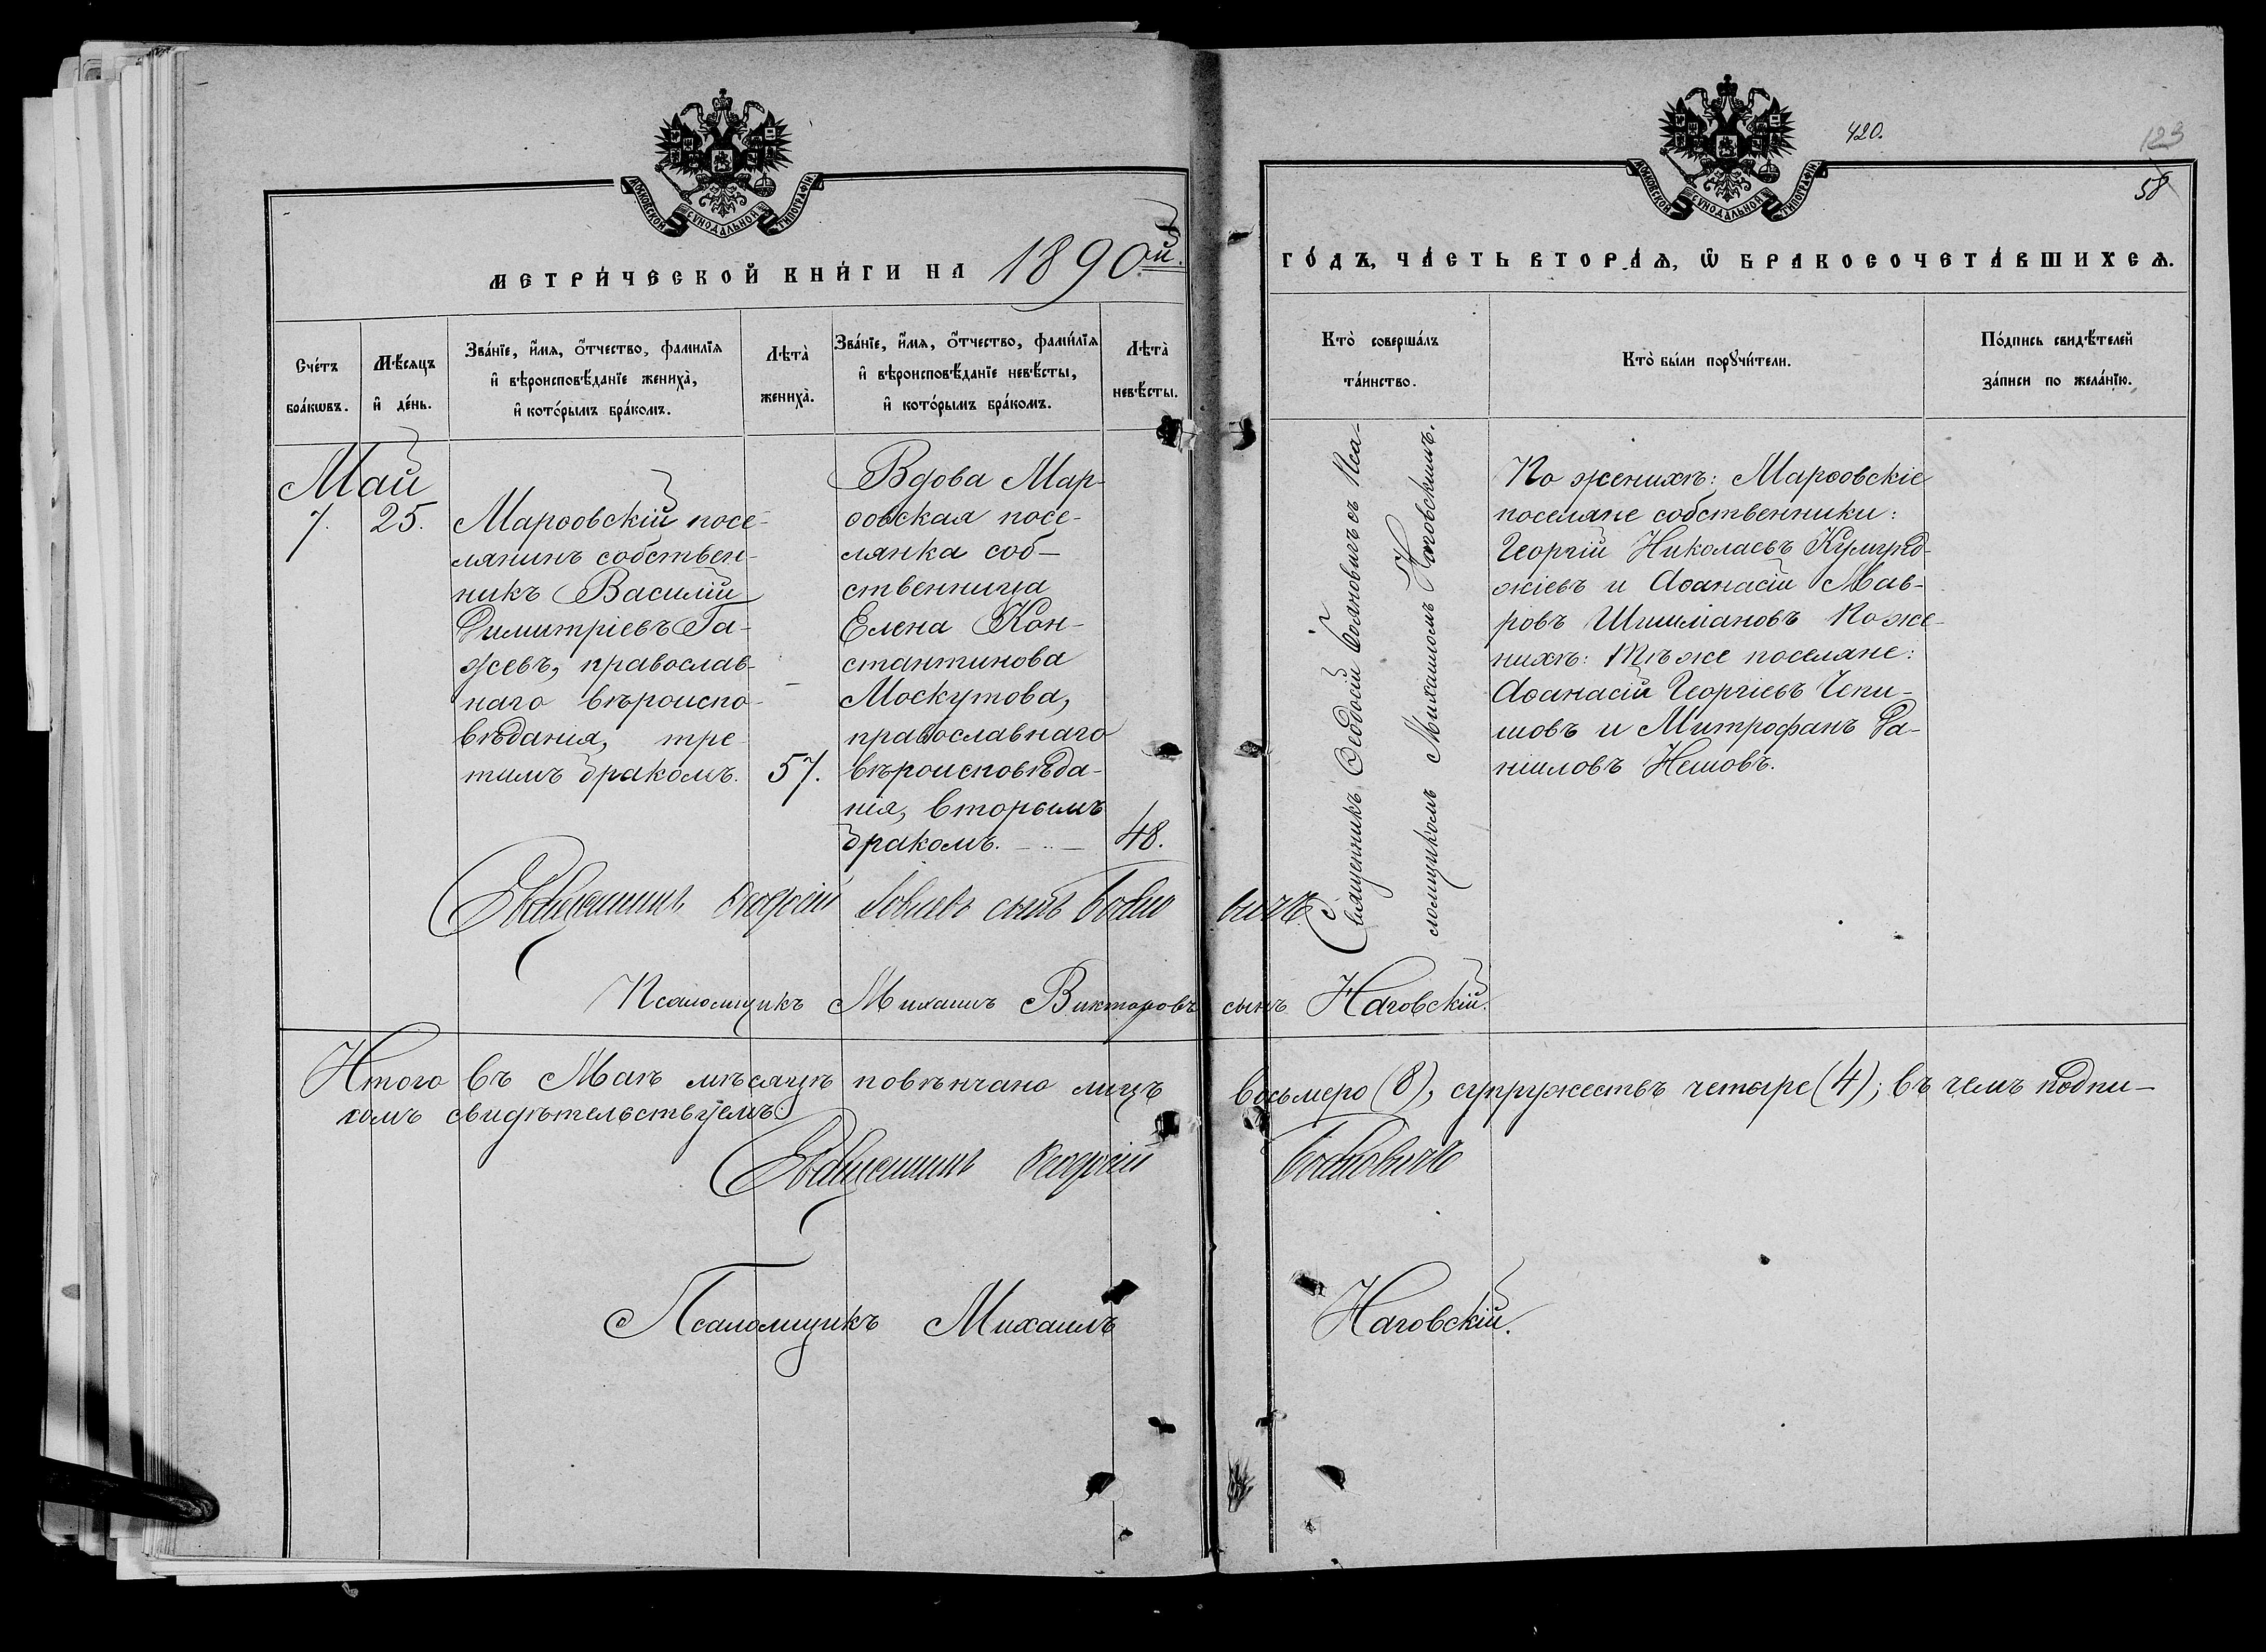 420.
123
58
МОСКОВСКОЙ СѴНОДАЛЬНОЙ ТИПОГРАФІИ
МОСКОВСКОЙ СѴНОДАЛЬНОЙ ТИПОГРАФІИ
МЕТРИ́ЧЕСКОЙ КНИ́ГИ НА 1890й.
ГО́ДЪ, ЧА́СТЬ ВТОРА́Ѧ, Ѿ БРАКОСОЧЕТА́ВШИХСѦ.
Сче́тъ
бра́кѡвъ.
Мѣ́сяцъ
и҆ де́нь.
Зва́нїе, и҆́мя, о҆́тчество, фами́лїя
и҆ вѣроисповѣ́данїе жениха̀,
и҆ кото́рымъ бра́комъ.
Лѣта̀
жениха̀.
Зва́нїе, и҆́мя, о҆́тчество, фами́лїя
и҆ вѣроисповѣ́данїе невѣ́сты,
и҆ кото́рымъ бра́комъ.
Лѣта̀
невѣ́сты.
Кто̀ соверша́лъ
та́инство.
Кто̀ бы́ли порꙋчи́тели.
По́дпись свидѣ́телей
за́писи по жела́нїю.
Май
7.
25.
Марѳовскій посе-
лянинъ собствен-
никъ Василій
Димитріевъ Га-
жевъ, православ-
наго вѣроиспо-
вѣданія, тре-
тимъ бракомъ.
57.
Вдова Мар-
ѳовская посе-
лянка соб-
ственница
Елена Кон-
стантинова
Москутова,
православнаго
вѣроисповѣда-
нія, вторымъ
бракомъ.
48.
Священникъ Ѳеодосій Бояновичъ съ Пса-
ломщикомъ Михаиломъ Наговскимъ.
По женихѣ: Марѳовскіе
поселяне собственники:
Георгій Николаевъ Кумурд-
жіевъ и Аѳанасій Мав-
ровъ Шишмановъ По же-
нихѣ: Тѣ же поселяне:
Аѳанасій Георгіевъ Чепи-
шовъ и Митрофанъ Да-
ніиловъ Нешовъ.
Священникъ Ѳеодосій сынъ
Псаломщикъ Михаилъ Викторовъ сынъ Наговскій.
Итого въ Маѣ мѣсяцѣ повѣнчано лицъ восьмеро (8), супружествъ четыре (4); въ чемъ подпи-
сомъ свидѣтельствуемъ:
Священникъ Ѳеодосій Бояновичъ
Псаломщикъ Михаилъ Наговскій.